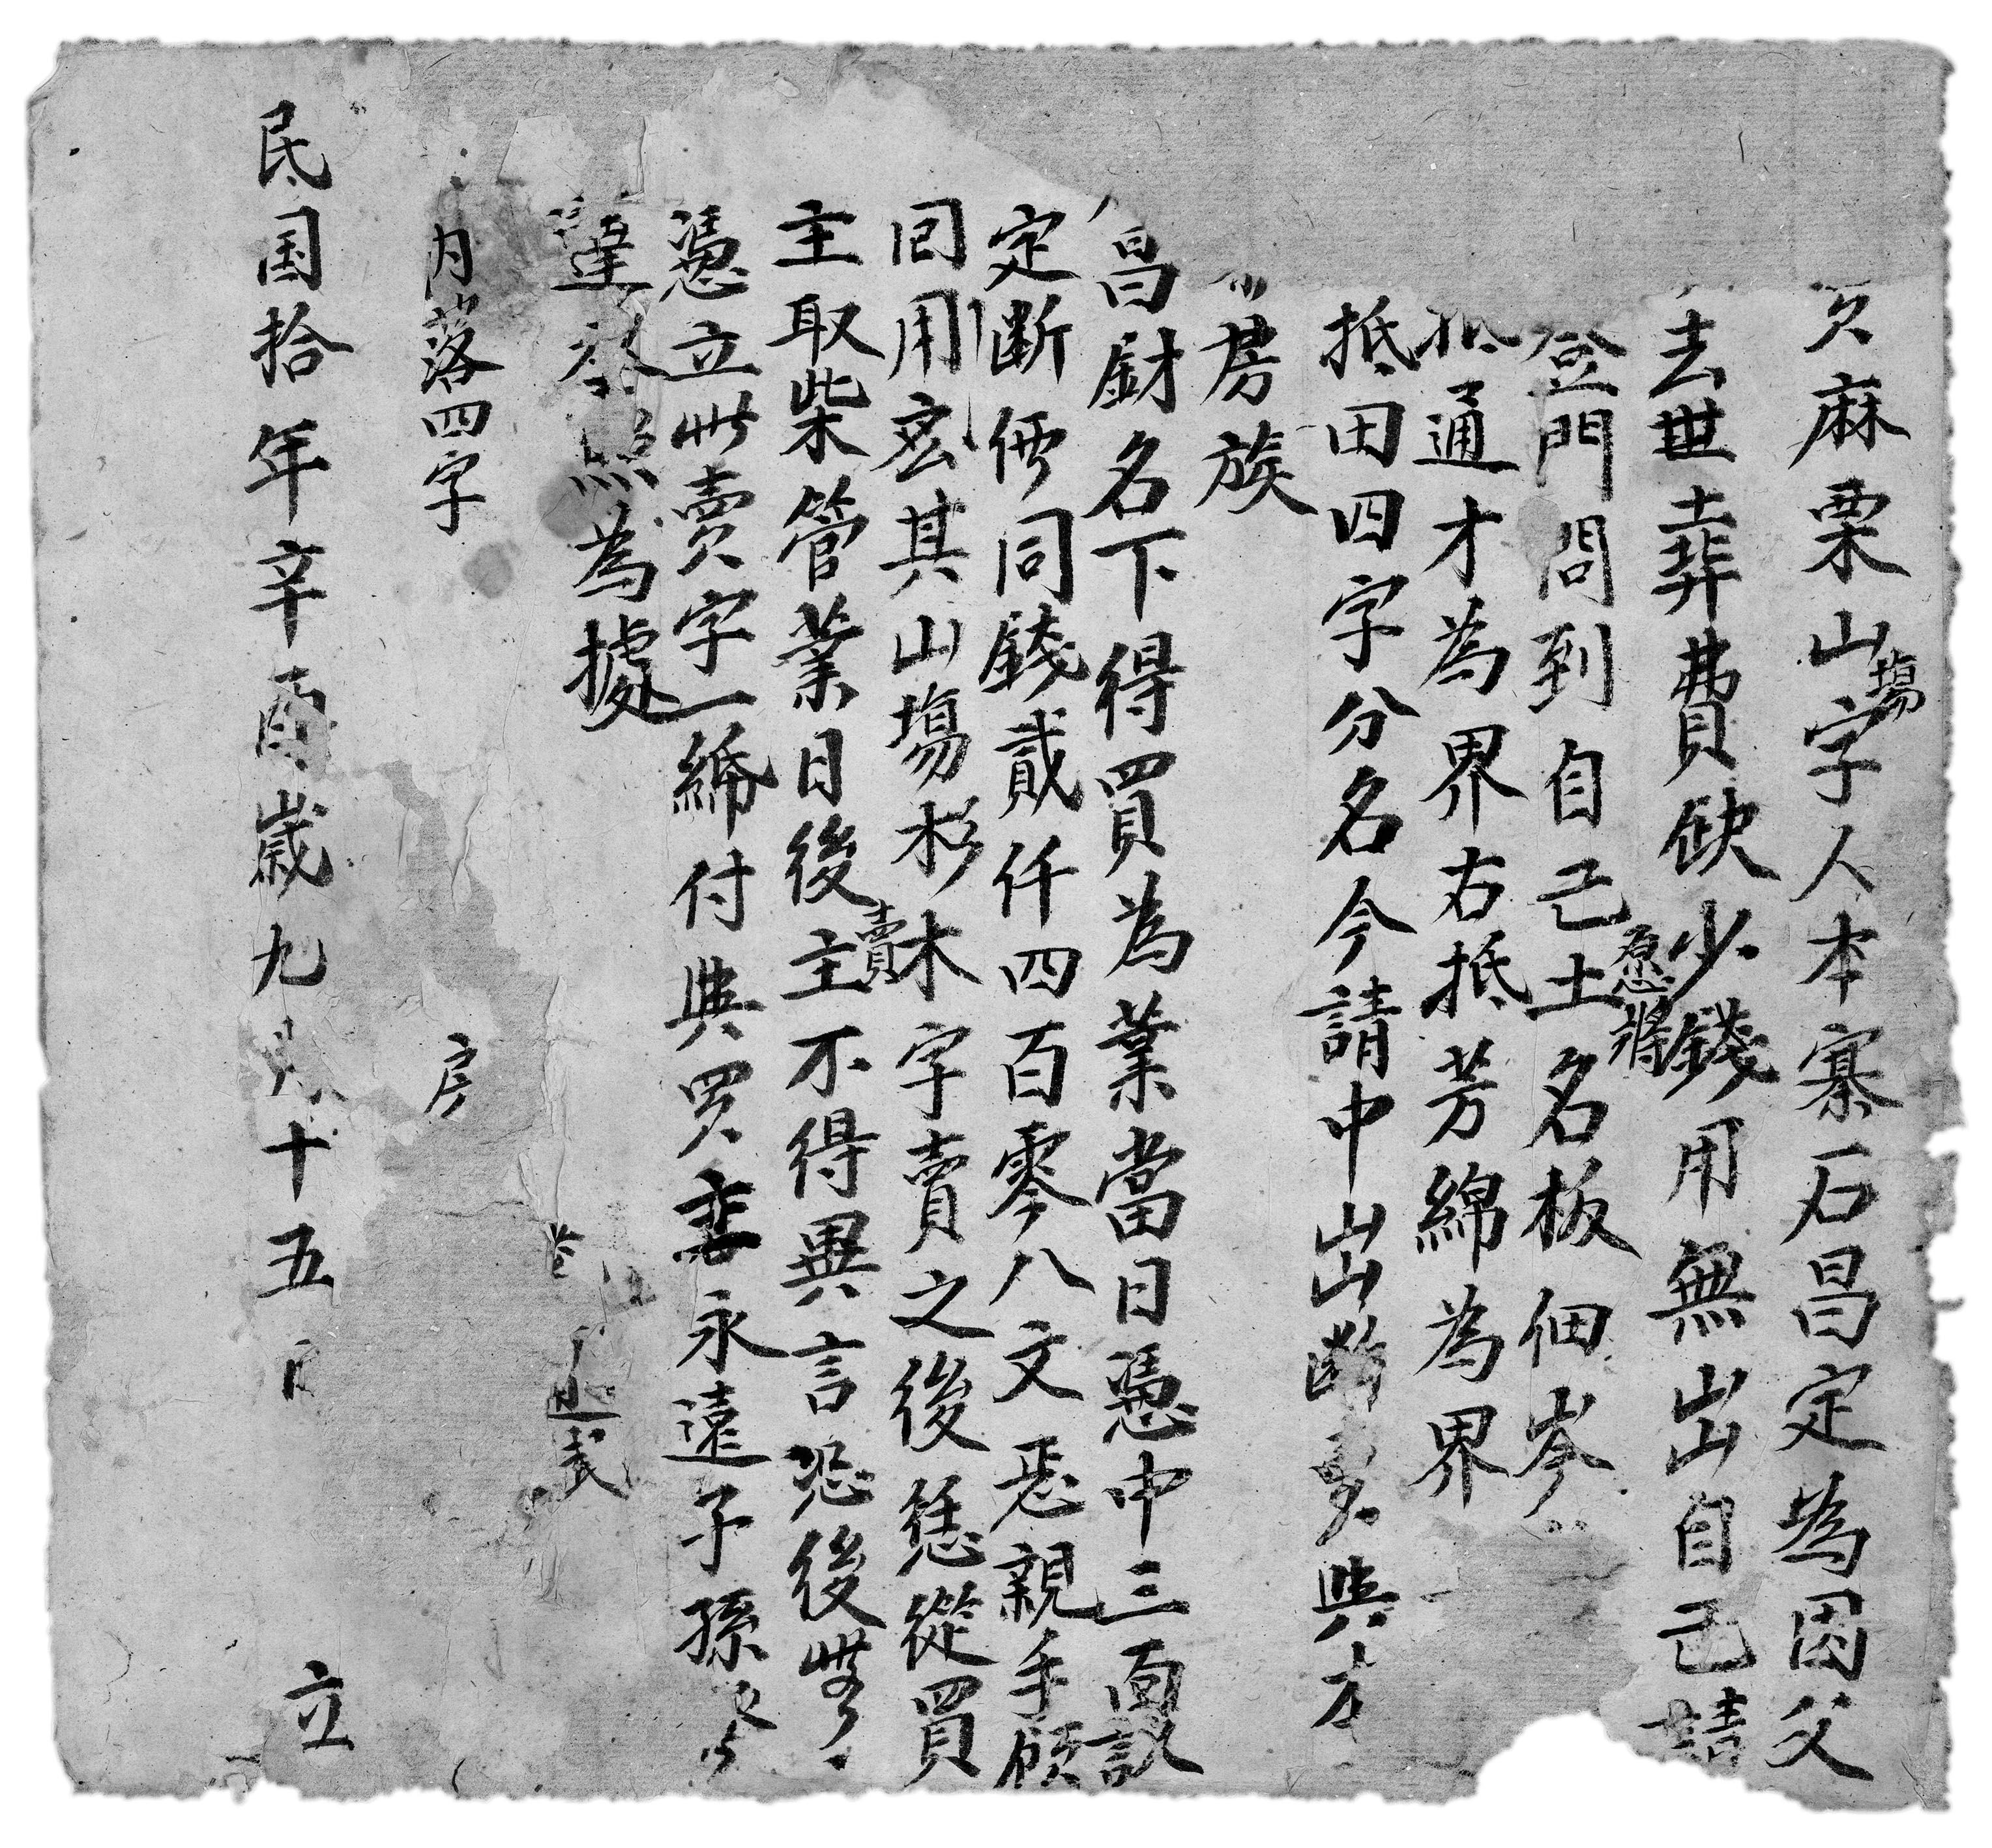 麻栗山塲字人本寨石昌定為因父
去世葬費缺少錢用無出自己請
登門問到自己愿將土名板佃岑
抵通才為界右抵芳綿為界
抵田四字分名今請中出斷賣與才
房族
昌財名下得買為業當日憑中三面議
定断價同錢貳仟四百零八文恁親手領
回用宏其山塲杉木字賣之後恁從買
主取柴管業日後賣主不得異言恐後無
憑立此賣字一綈付與買主永遠子孫
達發照為據
内落四字 房
民国拾年辛酉歲九月十五日 立